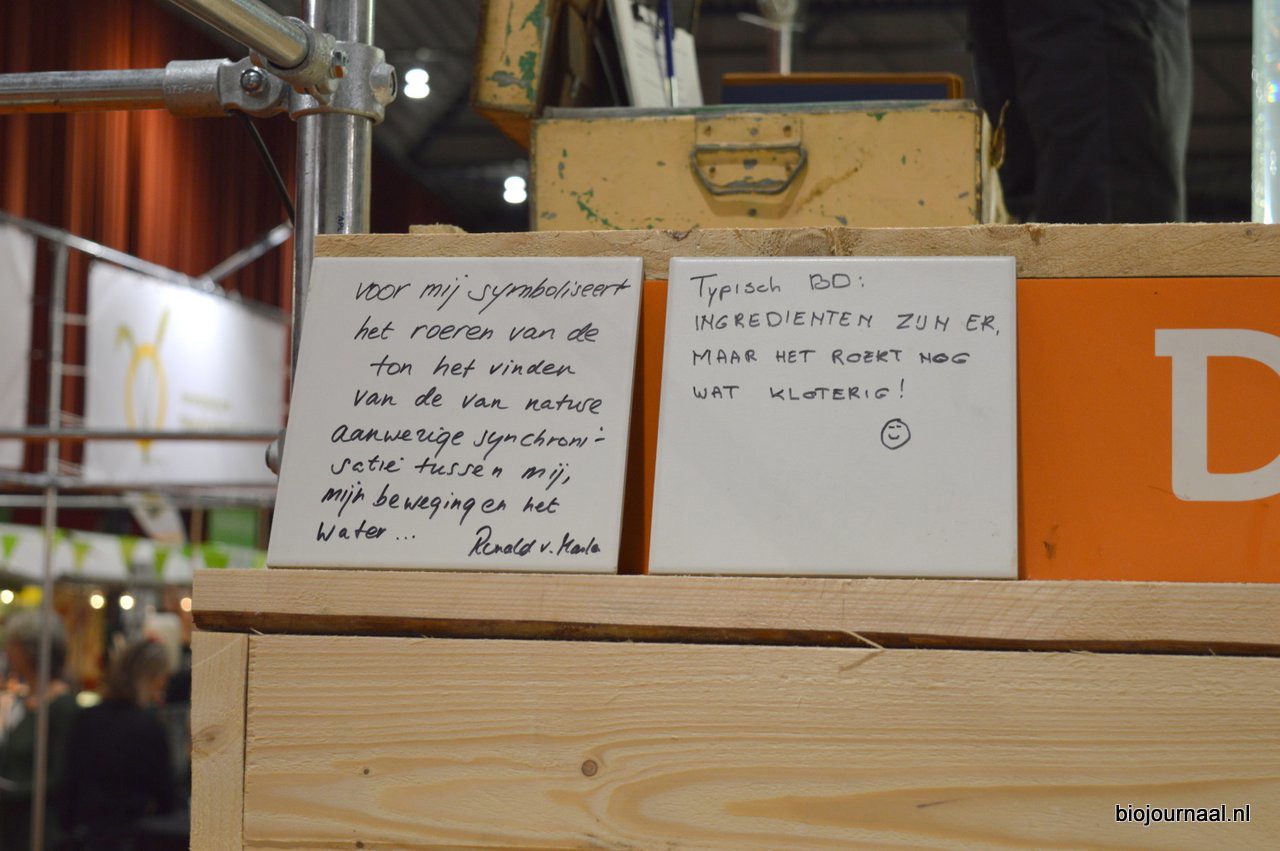 voor mij symboliseert
het roeren van de
ton het vinden
van de van nature
aanwezige synchroni-
satie tussen mij,
mijn beweging en het
water...
Ronald v.
Typisch BD:
INGREDIENTEN ZIJN ER,
MAAR HET ROERT NOG
WAT KLOTERIG!
D
biojournaal.nl